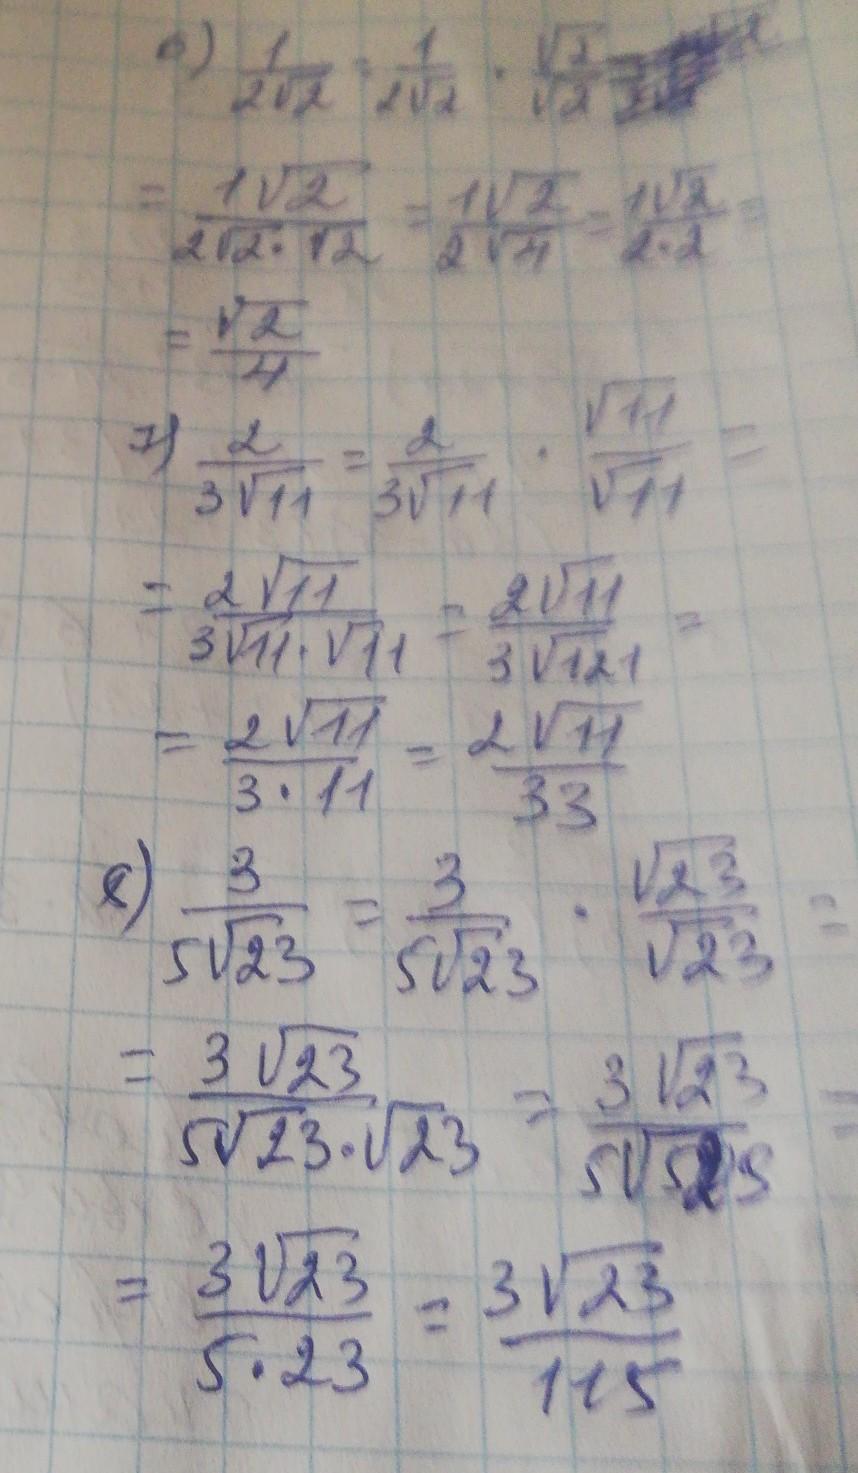 б) 1/(2√2) = 1/(2√2) · √2/√2
= 1√2/(2√2·√2) = 1√2/(2√4) = 1√2/(2·2) =
= √2/4
7) 2/(3√11) = 2/(3√11) · √11/√11 =
= 2√11/(3√11·√11) = 2√11/(3√121) =
= 2√11/(3·11) = 2√11/33
8) 3/(5√23) = 3/(5√23) · √23/√23 =
= 3√23/(5√23·√23) = 3√23/(5√529) =
= 3√23/(5·23) = 3√23/115